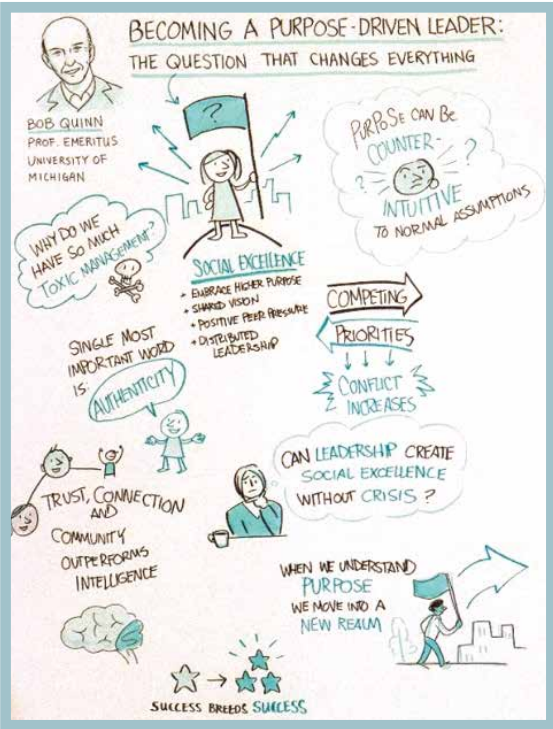 BECOMING A PURPOSE-DRIVEN LEADER:
THE QUESTION THAT CHANGES EVERYTHING
BOB QUINN
PROF. EMERITUS
UNIVERSITY OF
MICHIGAN
?
PURPOSE CAN BE
COUNTER-
? ?
INTUITIVE
TO NORMAL ASSUMPTIONS
WHY DO WE
HAVE SO MUCH
TOXIC MANAGEMENT?
SOCIAL EXCELLENCE
+ EMBRACE HIGHER PURPOSE
+ SHARED VISION
+ POSITIVE PEER PRESSURE
+ DISTRIBUTED
LEADERSHIP
COMPETING
PRIORITIES
CONFLICT
INCREASES
SINGLE MOST
IMPORTANT WORD
IS:
AUTHENTICITY
CAN LEADERSHIP CREATE
SOCIAL EXCELLENCE
WITHOUT CRISIS?
TRUST, CONNECTION
AND
COMMUNITY
OUTPERFORMS
INTELLIGENCE
WHEN WE UNDERSTAND
PURPOSE
WE MOVE INTO A
NEW REALM
SUCCESS BREEDS SUCCESS